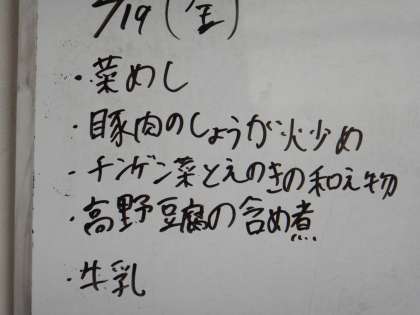 /19(金)
・菜めし
・豚肉のしょうが炒め
・チンゲン菜とえのきの和え物
・高野豆腐の含め煮
・牛乳